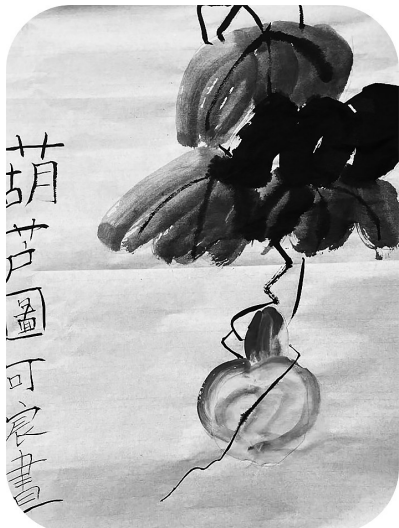 葫芦圖可宸畫